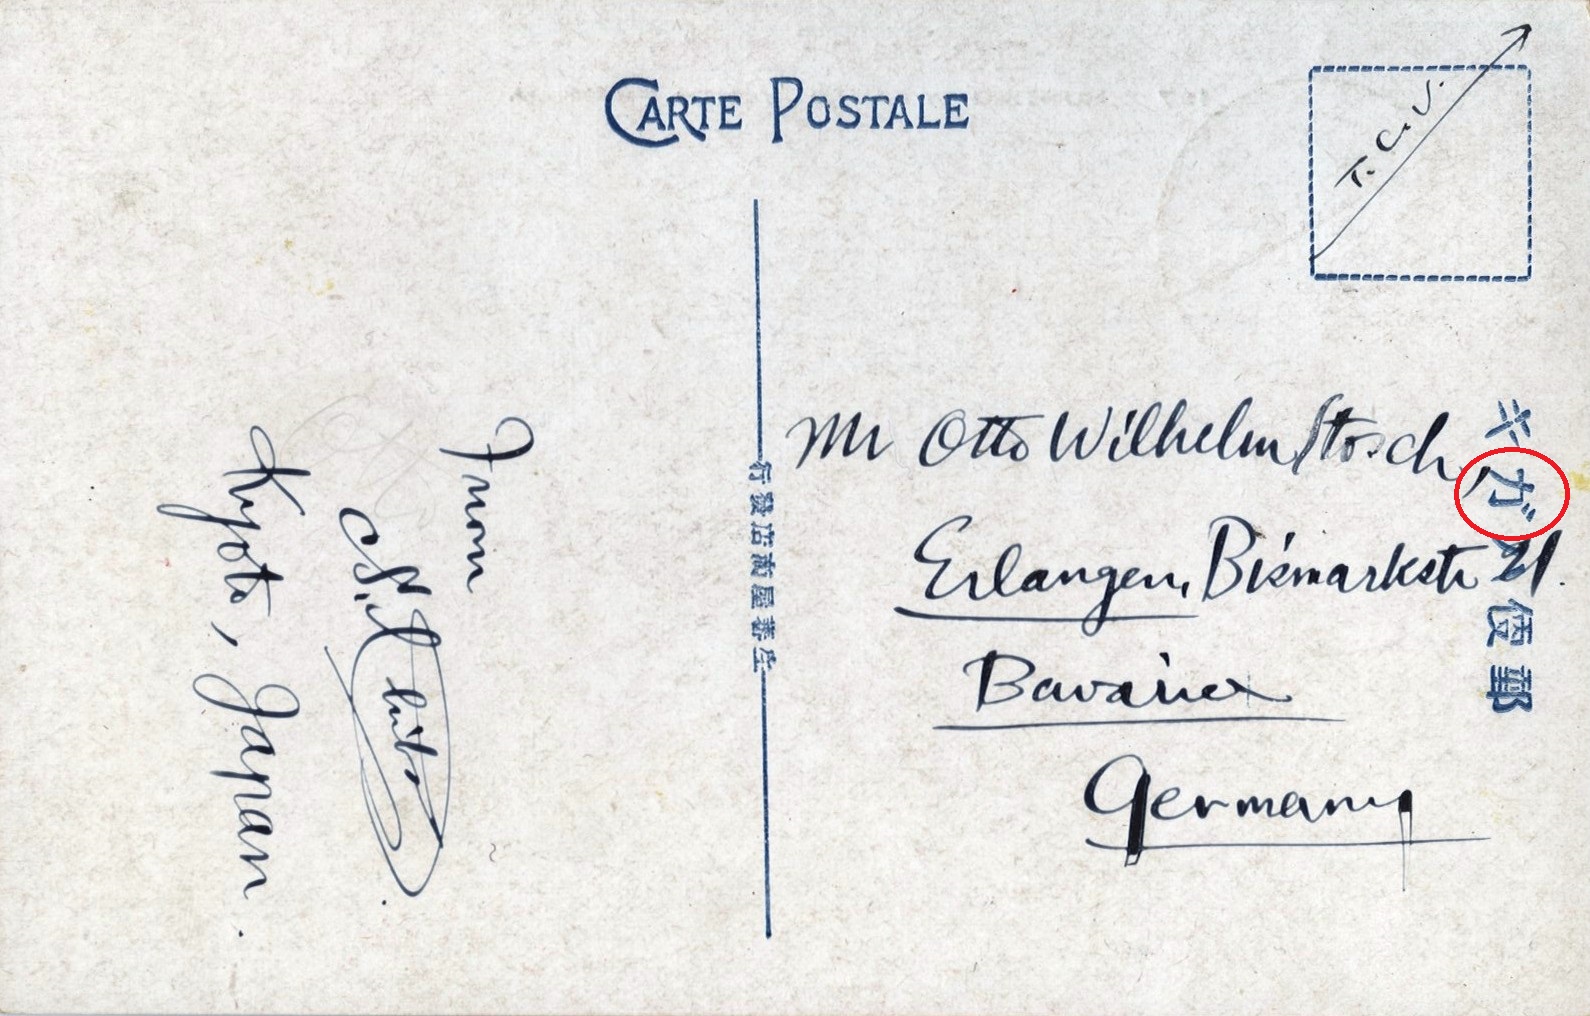 CARTE POSTALE
T.C.V.
Mr Otto Wilhelm Stosch,
Erlangen, Bismarkstr 21.
Bavaria
Germany
郵便ハガキ
生蕃屋商店發行
From
Kyoto, Japan.